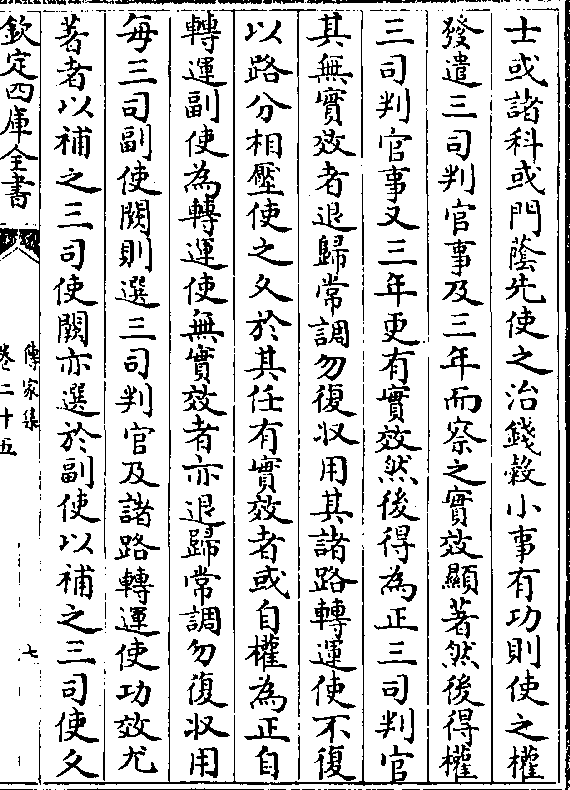 士或諸科或門蔭先使之治錢糓小事有功則使之權
發遣三司判官事及三年而察之實效顯著然後得權
三司判官事又三年更有實效然後得為正三司判官
其無實效者退歸常調勿復収用其諸路轉運使不復
以路分相壓使之久於其任有實效者或自權為正自
轉運副使為轉運使無實效者亦退歸常調勿復収用
每三司副使闕則選三司判官及諸路轉運使功效尤
著者以補之三司使闕亦選於副使以補之三司使久
欽定四庫全書
傳家集
卷二十五
七